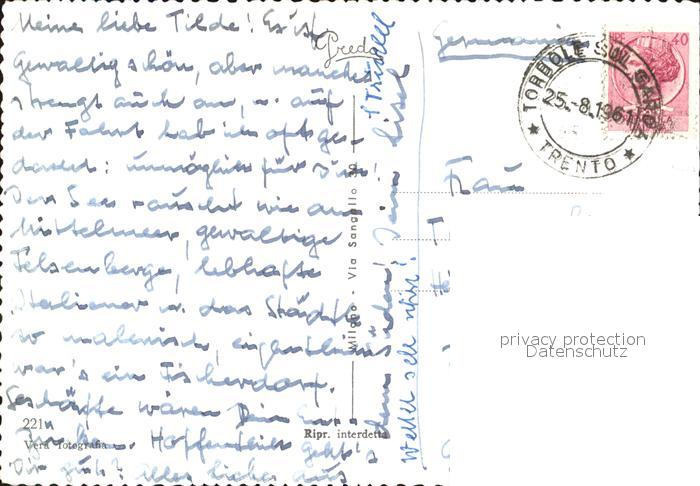 Meine liebe Tilde! Es ist
gewaltig schön, aber manches
strengt auch an, u. auf
der Fahrt hab ich oft ge-
dacht: unmöglich für Dich!
Der See rauscht wie am
Mittelmeer, gewaltige
Felsenberge, lebhafte
Italiener u. das Städtle
so malerisch, eigentlich
war's ein Fischerdorf.
Geschäfte wären Dein Ent-
zücken. Hoffentlich geht's
Dir gut? Alles Liebe aus
dem Süden! Deine Lisel
Wetter sehr
Germania
Frau
TORBOLE SUL GARDA
25.-8.1961
★ TRENTO ★
40
221
Vera fotografia
Ripr. interdetta
Milano - Via Sangallo
privacy protection
Datenschutz